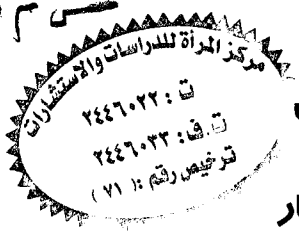 مركز المرأة للدراسات والاستشارات
ت : ٢٤٤٦٠٢٢
ت. ف: ٢٤٤٦٠٣٣
ترخيص رقم : ( ٧١ )
ار